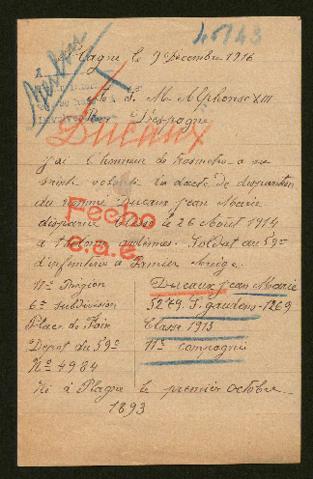 45743
Cagne, le 9 Décembre 1916
A S. M. Alphonse XIII
Roi D'espagne
DUCAUX
J'ai l'honneur de trasmettre a sa
sainte volonté la dacte de disparution
du nommé Ducaux Jean Marie
disparue Blessé le 26 Août 1914
a Soldat au 59e
d'infanterie a Pamier Ariège.
Fecho
e.a.e.
17e Région
6e subdivision
Place de Foix
Depot du 59e
No 4984
Ducaux Jean Marie
5279. S. gaudens - 1269
Classe 1913
11e compagnie
Né à Plagne le premier octobre
1893